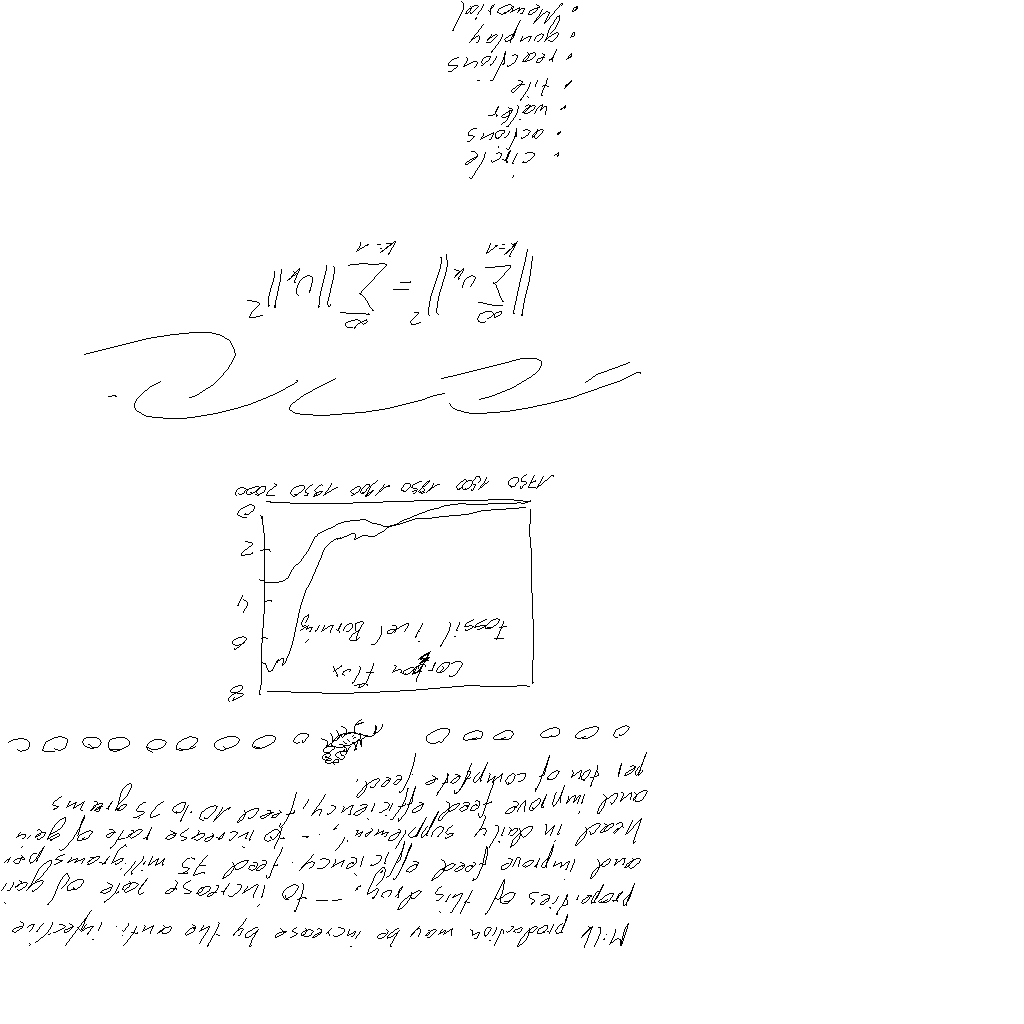 Milk production may be increase by the anti. infective
properties of this drug. -- to increase rate of gain
and improve feed efficiency. feed 75 milligrams per
head in daily supplement, -- to increase rate of gain
and improve feed efficiency, feed 10 to 75 grams
per ton of complete feed.
Carbon Flux
Fossil fuel Burning
8
6
4
2
0
1750 1800 1850 1900 1950 2000
||∑_{k=1}^{∞} u_k||^2 = ∑_{k=1}^{∞} ||u_k||^2
• circle
• actions
• waiter
• tile
• reactions
• gunplay
• Memorial